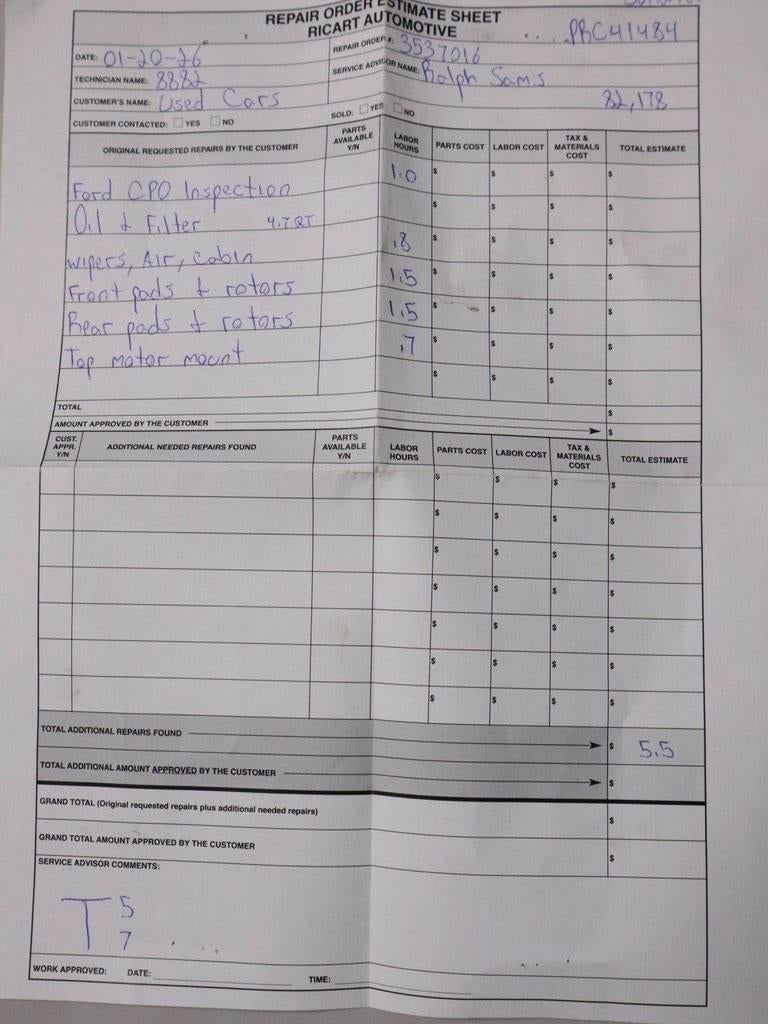 REPAIR ORDER ESTIMATE SHEET
RICART AUTOMOTIVE
PRC41484
DATE: 01-20-26
REPAIR ORDER#: 3537016
TECHNICIAN NAME: 8882
SERVICE ADVISOR NAME: Ralph Sams
CUSTOMER'S NAME: Used Cars
82,178
CUSTOMER CONTACTED: YES NO
SOLD: YES NO
ORIGINAL REQUESTED REPAIRS BY THE CUSTOMER PARTS AVAILABLE Y/N LABOR HOURS PARTS COST LABOR COST TAX & MATERIALS COST TOTAL ESTIMATE
Ford CPO Inspection 1.0 $ $ $ $
Oil & Filter 4.7 QT $ $ $ $
wipers, Air, Cabin .8 $ $ $ $
Front pads & rotors 1.5 $ $ $ $
Rear pads & rotors 1.5 $ $ $ $
Top motor mount .7 $ $ $ $
$ $ $ $
TOTAL $
AMOUNT APPROVED BY THE CUSTOMER $
CUST. APPR. Y/N ADDITIONAL NEEDED REPAIRS FOUND PARTS AVAILABLE Y/N LABOR HOURS PARTS COST LABOR COST TAX & MATERIALS COST TOTAL ESTIMATE
$ $ $ $
$ $ $ $
$ $ $ $
$ $ $ $
$ $ $ $
$ $ $ $
$ $ $ $
TOTAL ADDITIONAL REPAIRS FOUND $ 5.5
TOTAL ADDITIONAL AMOUNT APPROVED BY THE CUSTOMER $
GRAND TOTAL (Original requested repairs plus additional needed repairs) $
GRAND TOTAL AMOUNT APPROVED BY THE CUSTOMER $
SERVICE ADVISOR COMMENTS:
T 5
7
WORK APPROVED: DATE: TIME: